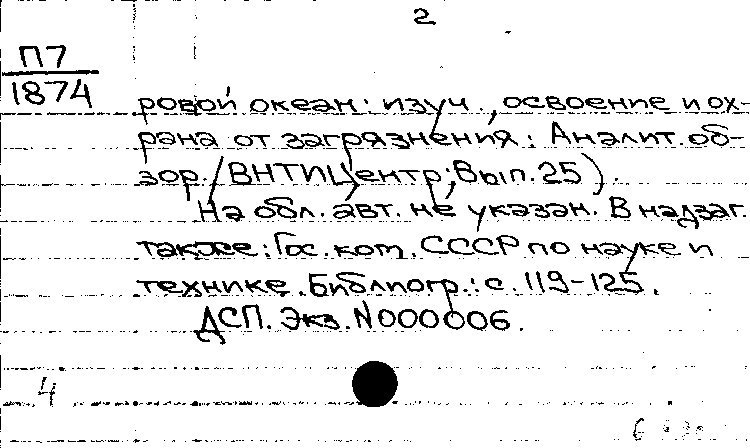 2
П7
1874
ровой океан: изуч., освоение и ох-
рана от загрязнения: Аналит. об-
зор. / ВНТИЦентр; Вып. 25).
На обл. авт. не указан. В надзаг.
также: Гос. ком. СССР по науке и
технике. Библиогр.: с. 119-125.
ДСП. Экз. N000006.
4